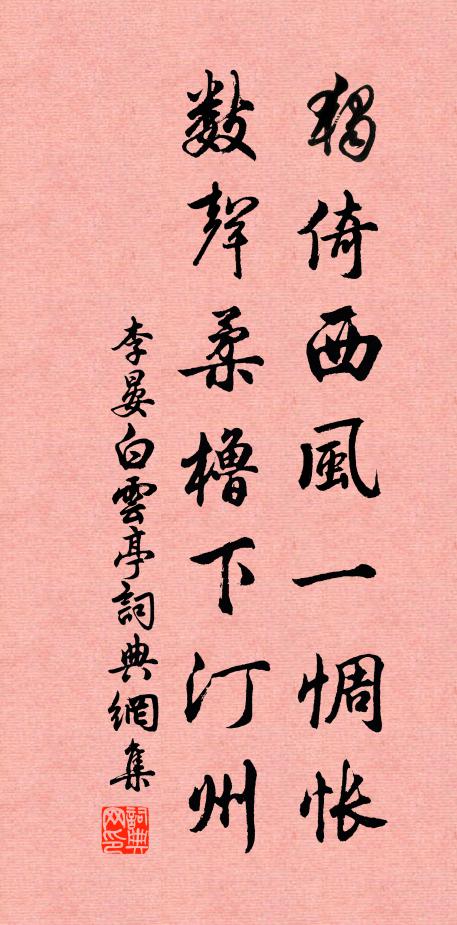 獨倚西風一惆悵
數聲柔櫓下汀州
李晏白雲亭詞典網集
詞典
网印